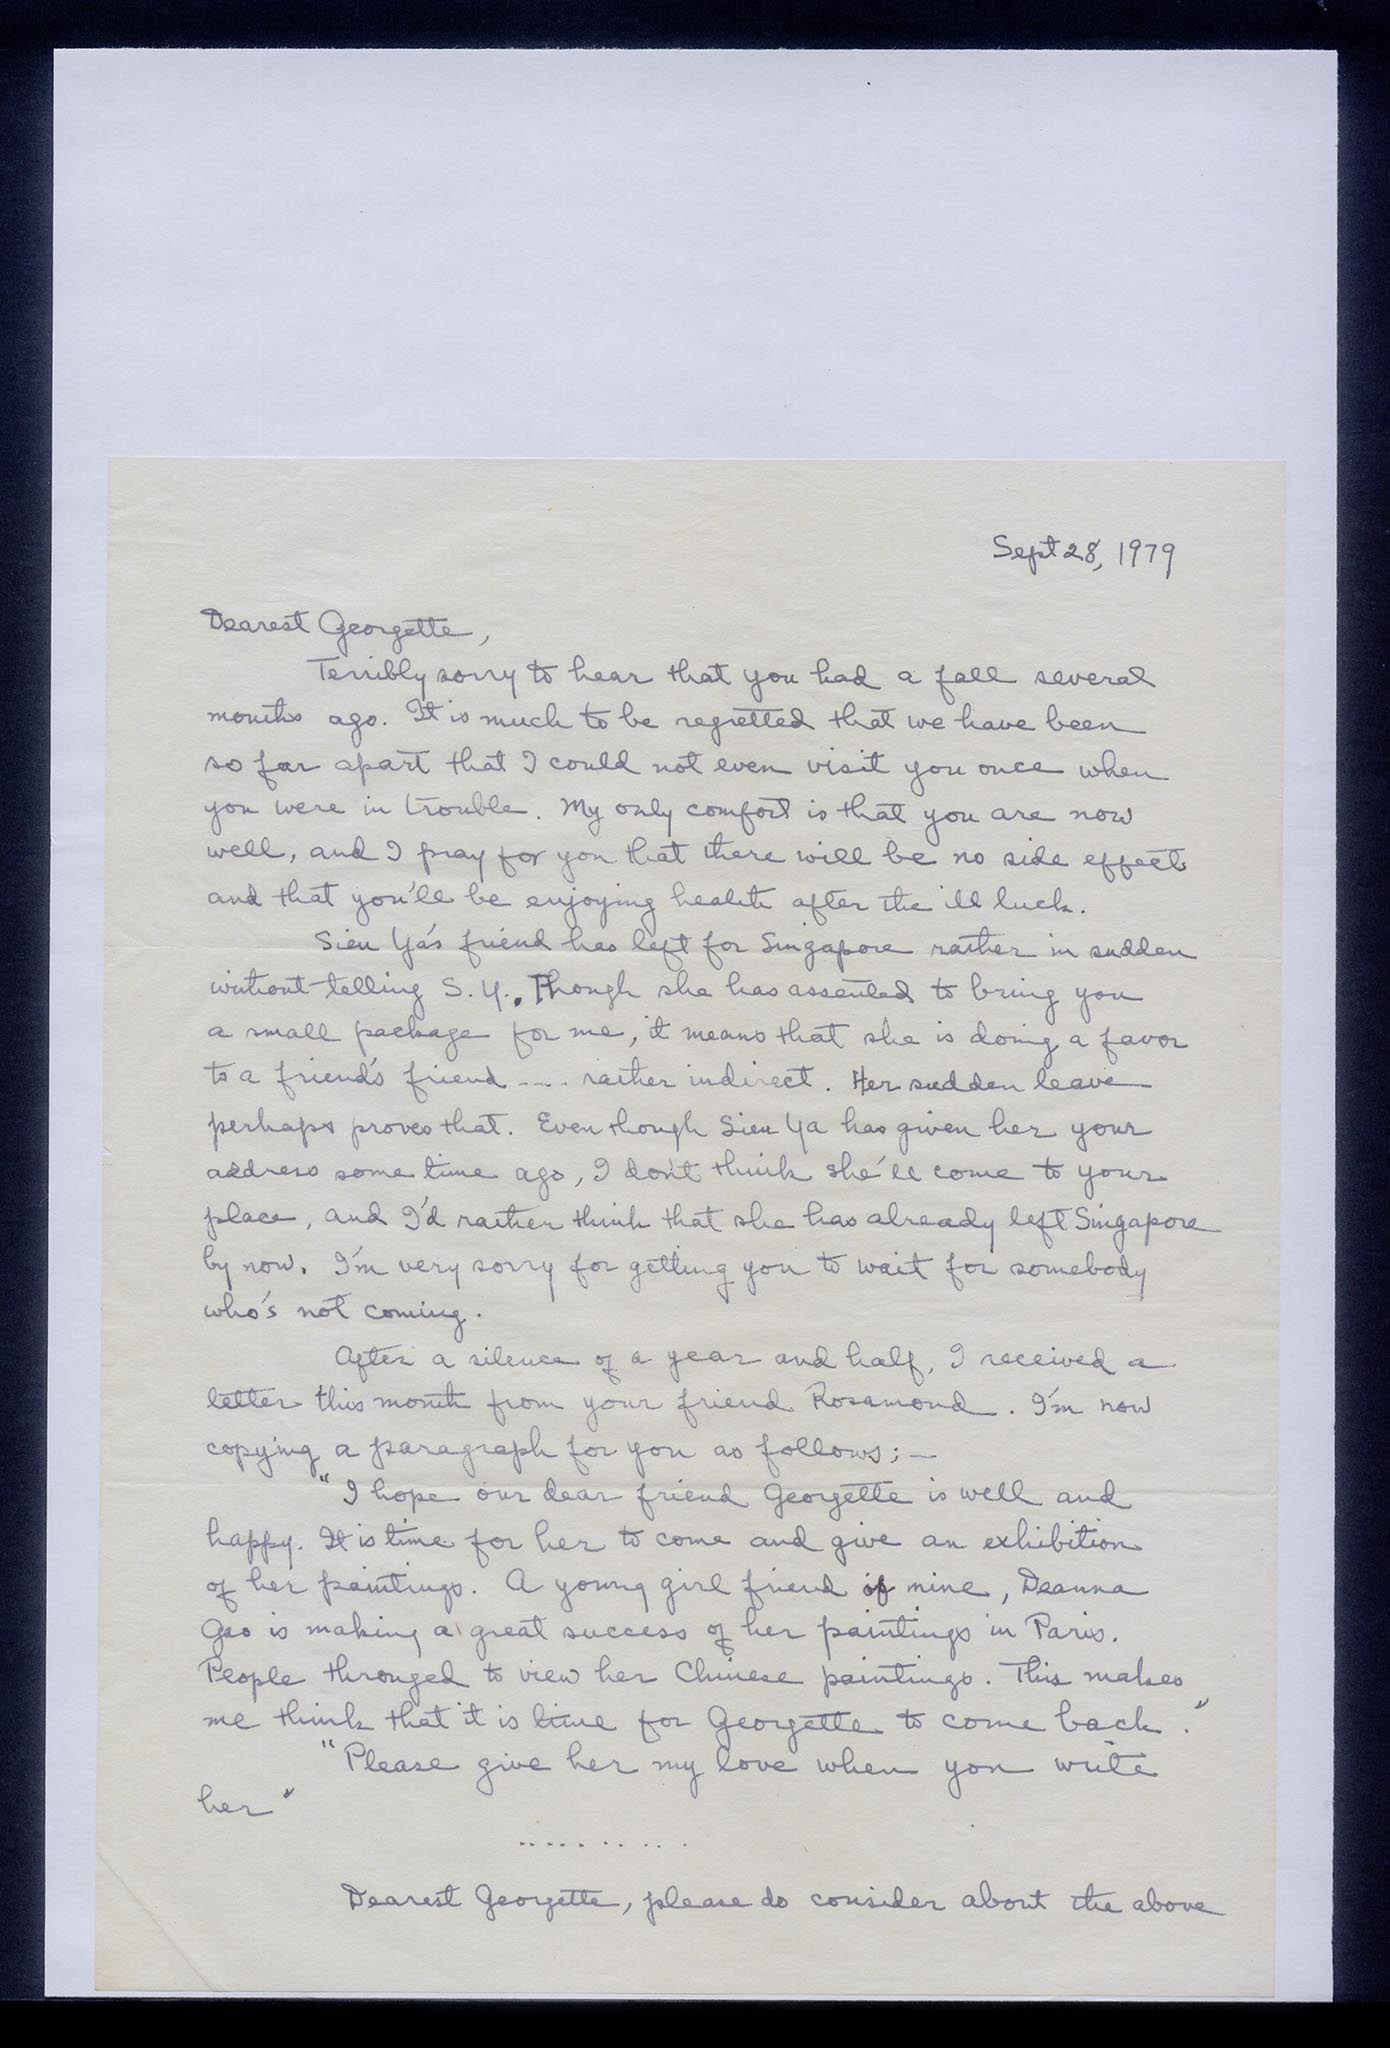 Sept 28, 1979
Dearest Georgette,
Terribly sorry to hear that you had a fall several
months ago. It is much to be regretted that we have been
so far apart that I could not even visit you once when
you were in trouble. My only comfort is that you are now
well, and I pray for you that there will be no side effects
and that you'll be enjoying health after the ill luck.
Sieu Ya's friend has left for Singapore rather in sudden
without telling S. Y.. Though she has assented to bring you
a small package for me, it means that she is doing a favor
to a friend's friend ---- rather indirect. Her sudden leave
perhaps proves that. Even though Sieu Ya has given her your
address some time ago, I don't think she'll come to your
place, and I'd rather think that she has already left Singapore
by now. I'm very sorry for getting you to wait for somebody
who's not coming.
After a silence of a year and half, I received a
letter this month from your friend Rosamond. I'm now
copying a paragraph for you as follows; —
"I hope our dear friend Georgette is well and
happy. It is time for her to come and give an exhibition
of her paintings. A young girl friend of mine, Deanna
Gao is making a great success of her paintings in Paris.
People thronged to view her Chinese paintings. This makes
me think that it is time for Georgette to come back."
"Please give her my love when you write
her"
..........
Dearest Georgette, please do consider about the above